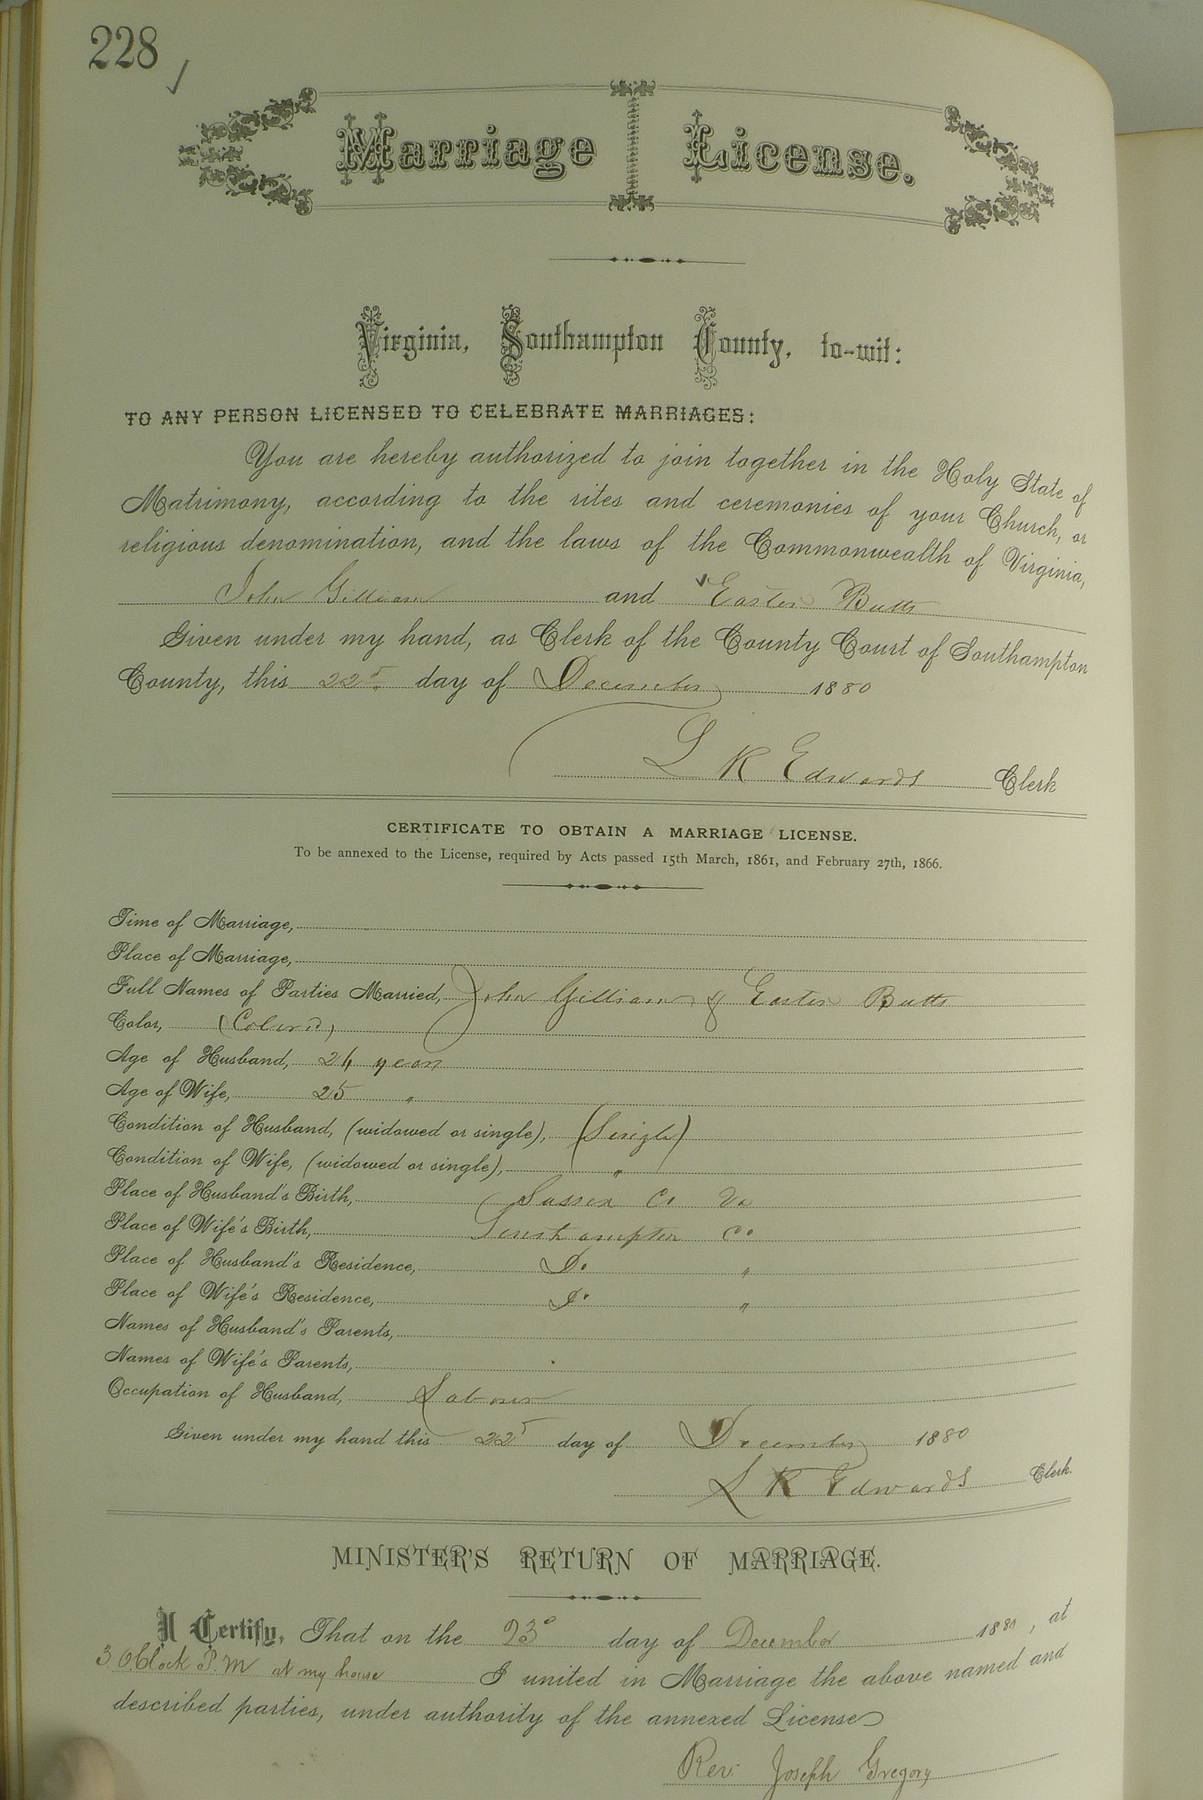 228
Marriage License.
Virginia, Southampton County, to-wit:
TO ANY PERSON LICENSED TO CELEBRATE MARRIAGES:
You are hereby authorized to join together in the Holy State of
Matrimony, according to the rites and ceremonies of your Church, or
religious denomination, and the laws of the Commonwealth of Virginia,
John Gilliam and Easter Butts
Given under my hand, as Clerk of the County Court of Southampton
County, this 22d day of December 1880
L R Edwards Clerk
CERTIFICATE TO OBTAIN A MARRIAGE LICENSE.
To be annexed to the License, required by Acts passed 15th March, 1861, and February 27th, 1866.
Time of Marriage,
Place of Marriage,
Full Names of Parties Married, John Gilliam & Easter Butts
Color, (Colored)
Age of Husband, 24 years
Age of Wife, 25 "
Condition of Husband, (widowed or single), (Single)
Condition of Wife, (widowed or single), "
Place of Husband's Birth, Sussex Co Va
Place of Wife's Birth, Southampton Co
Place of Husband's Residence, Do "
Place of Wife's Residence, Do "
Names of Husband's Parents,
Names of Wife's Parents,
Occupation of Husband, Laborer
Given under my hand this 22d day of December 1880
L R Edwards Clerk.
MINISTER'S RETURN OF MARRIAGE.
I Certify, That on the 23d day of December 1880, at
3 OClock P.M at my house I united in Marriage the above named and
described parties, under authority of the annexed License
Rev. Joseph Gregory